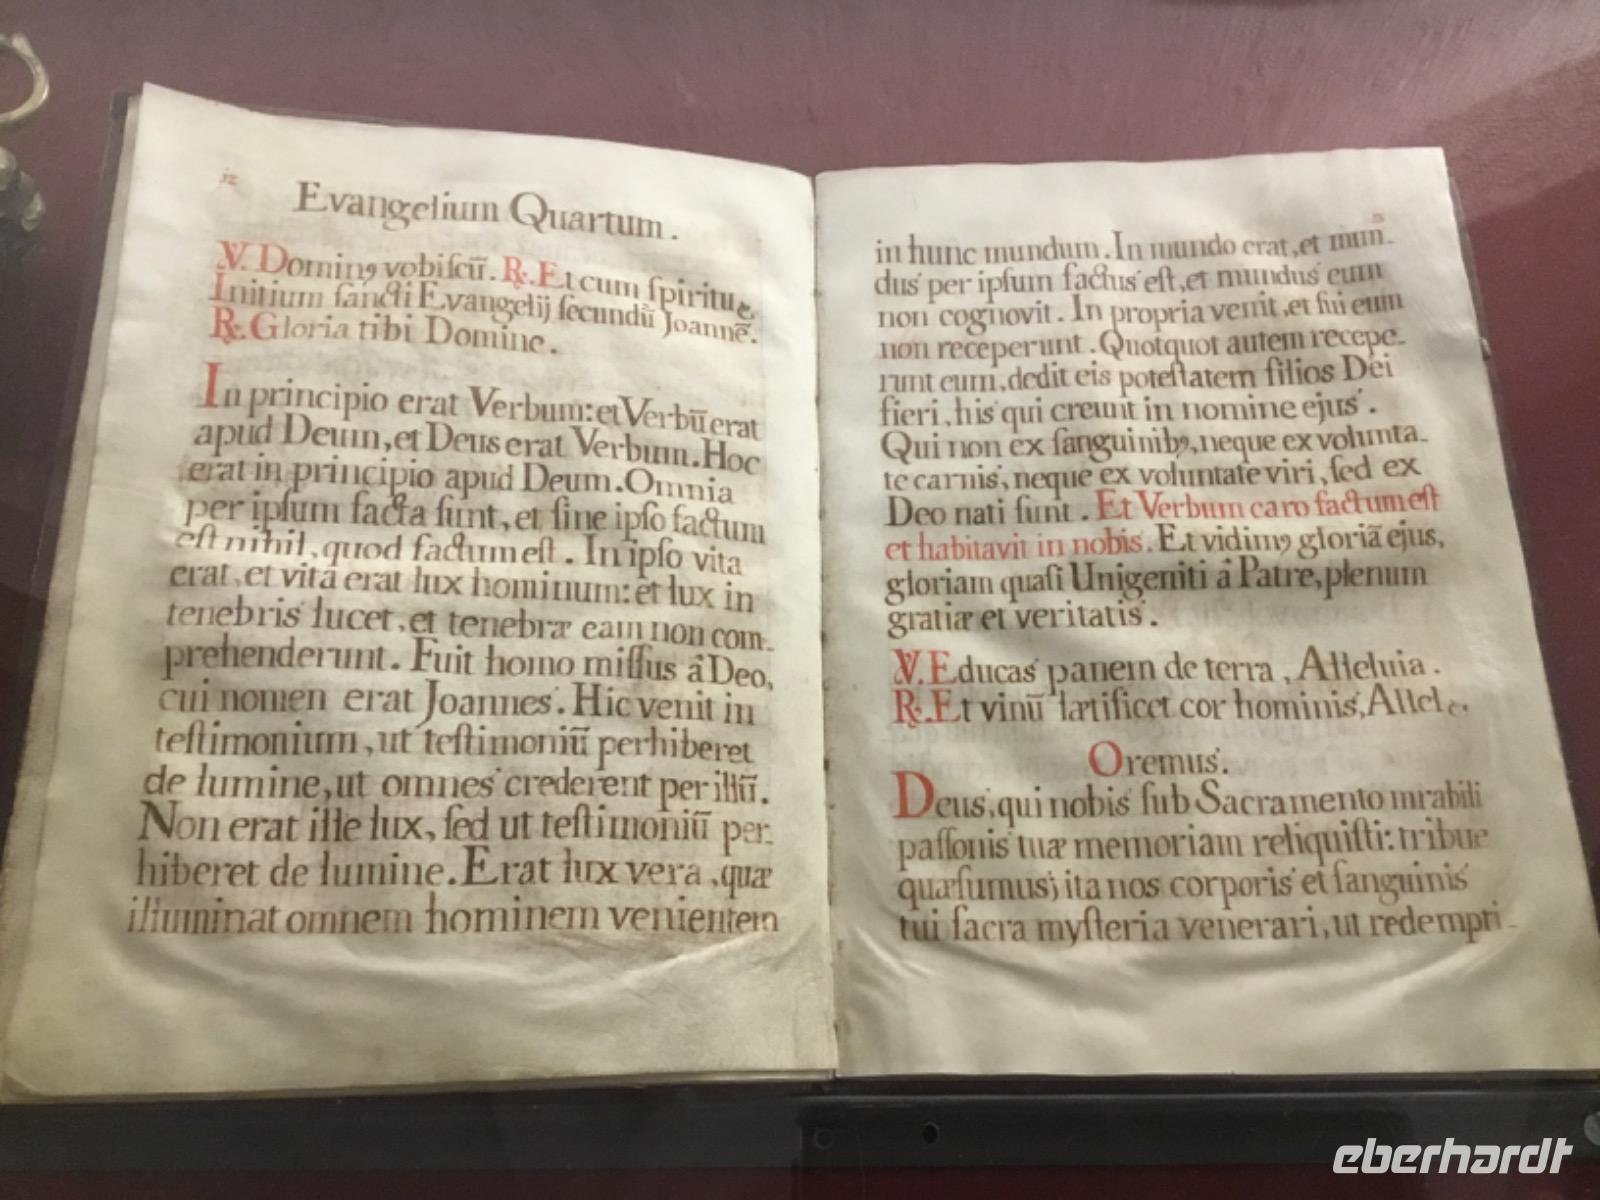 12
Evangelium Quartum.
V. Dominꝰ vobiſcū. R. Et cum ſpiritu
Initium ſancti Evangelij ſecundū Joannē.
R. Gloria tibi Domine.
In principio erat Verbum: et Verbū erat
apud Deum, et Deus erat Verbum. Hoc
erat in principio apud Deum. Omnia
per ipſum facta ſunt, et ſine ipſo factum
eſt nihil, quod factum eſt. In ipſo vita
erat, et vita erat lux hominum: et lux in
tenebris lucet, et tenebræ eam non com-
prehenderunt. Fuit homo miſſus â Deo,
cui nomen erat Joannes. Hic venit in
teſtimonium, ut teſtimoniū perhiberet
de lumine, ut omnes crederent per illū.
Non erat ille lux, ſed ut teſtimoniū per-
hiberet de lumine. Erat lux vera, quæ
illuminat omnem hominem venientem
in hunc mundum. In mundo erat, et mun-
dus per ipſum factus eſt, et mundus eum
non cognovit. In propria venit, et ſui eum
non receperunt. Quotquot autem recepe-
runt eum, dedit eis poteſtatem filios Dei
fieri, his qui creunt in nomine ejus.
Qui non ex ſanguinibꝰ, neque ex volunta-
te carnis, neque ex voluntate viri, ſed ex
Deo nati ſunt. Et Verbum caro factum eſt
et habitavit in nobis. Et vidimꝰ gloriā ejus,
gloriam quaſi Unigeniti â Patre, plenum
gratiæ et veritatis.
V. Educas panem de terra, Alleluia.
R. Et vinū lætificet cor hominis, Allel.
Oremus.
Deus, qui nobis ſub Sacramento mrabili
paſſonis tuæ memoriam reliquiſti: tribue
quæſumus, ita nos corporis et ſanguinis
tui ſacra myſteria venerari, ut redempti-
eberhardt